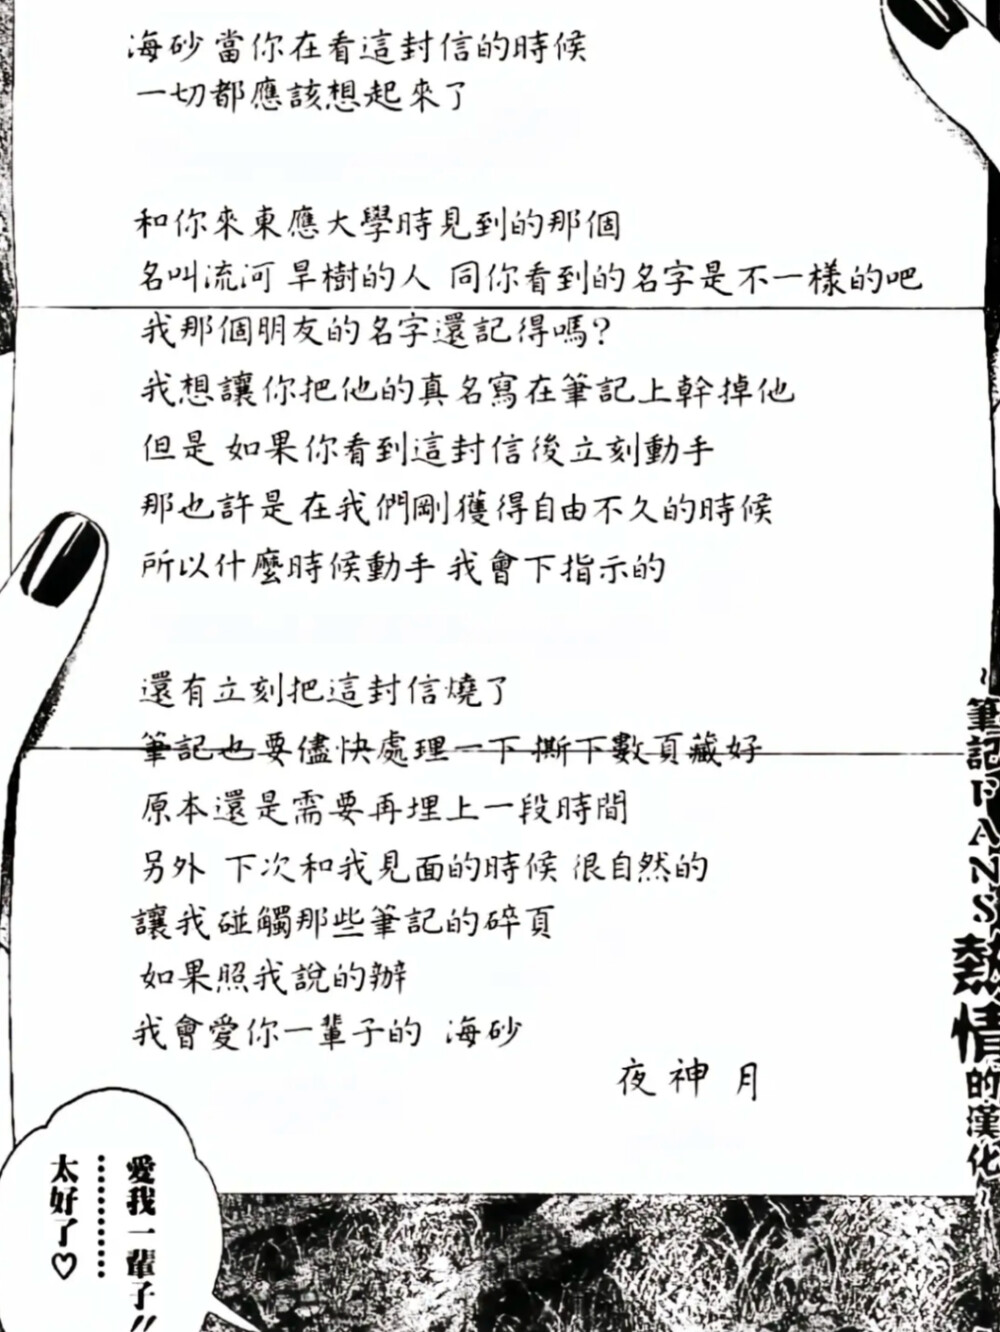 海砂當你在看這封信的時候
一切都應該想起來了
和你來東應大學時見到的那個
名叫流河 旱樹的人 同你看到的名字是不一樣的吧
我那個朋友的名字還記得嗎?
我想讓你把他的真名寫在筆記上幹掉他
但是 如果你看到這封信後立刻動手
那也許是在我們剛獲得自由不久的時候
所以什麼時候動手 我會下指示的
還有立刻把這封信燒了
筆記也要儘快處理一下 撕下數頁藏好
原本還是需要再埋上一段時間
另外 下次和我見面的時候 很自然的
讓我碰觸那些筆記的碎頁
如果照我說的辦
我會愛你一輩子的 海砂
夜神 月
~筆記FANS熱情的漢化~
愛我一輩子!!
…………
太好了♡